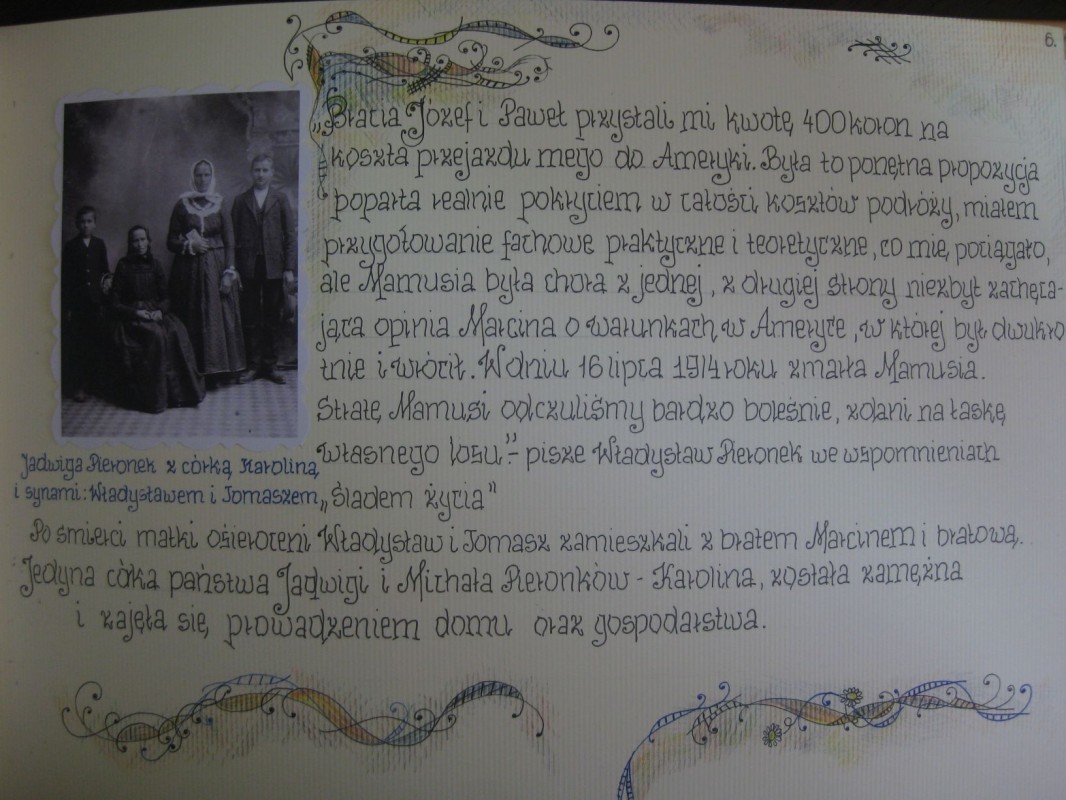 6.
„Bracia Józef i Paweł przysłali mi kwotę 400 koron na
koszta przejazdu mego do Ameryki. Była to ponętna propozycja
poparta realnie pokryciem w całości kosztów podróży, miałem
przygotowanie fachowe praktyczne i teoretyczne, co mię pociągało,
ale Mamusia była chora z jednej, z drugiej strony niezbyt zachęca-
jąca opinia Marcina o warunkach w Ameryce, w której był dwukro
tnie i wrócił. W dniu 16 lipca 1914 roku zmarła Mamusia.
Stratę Mamusi odczuliśmy bardzo boleśnie, zdani na łaskę
własnego losu." - pisze Władysław Pieronek we wspomnieniach
„Śladem życia"
Jadwiga Pieronek z córką Karoliną
i synami: Władysławem i Tomaszem
Po śmierci matki osieroceni Władysław i Tomasz zamieszkali z bratem Marcinem i bratową.
Jedyna córka państwa Jadwigi i Michała Pieronków - Karolina, została zamężna
i zajęła się prowadzeniem domu oraz gospodarstwa.